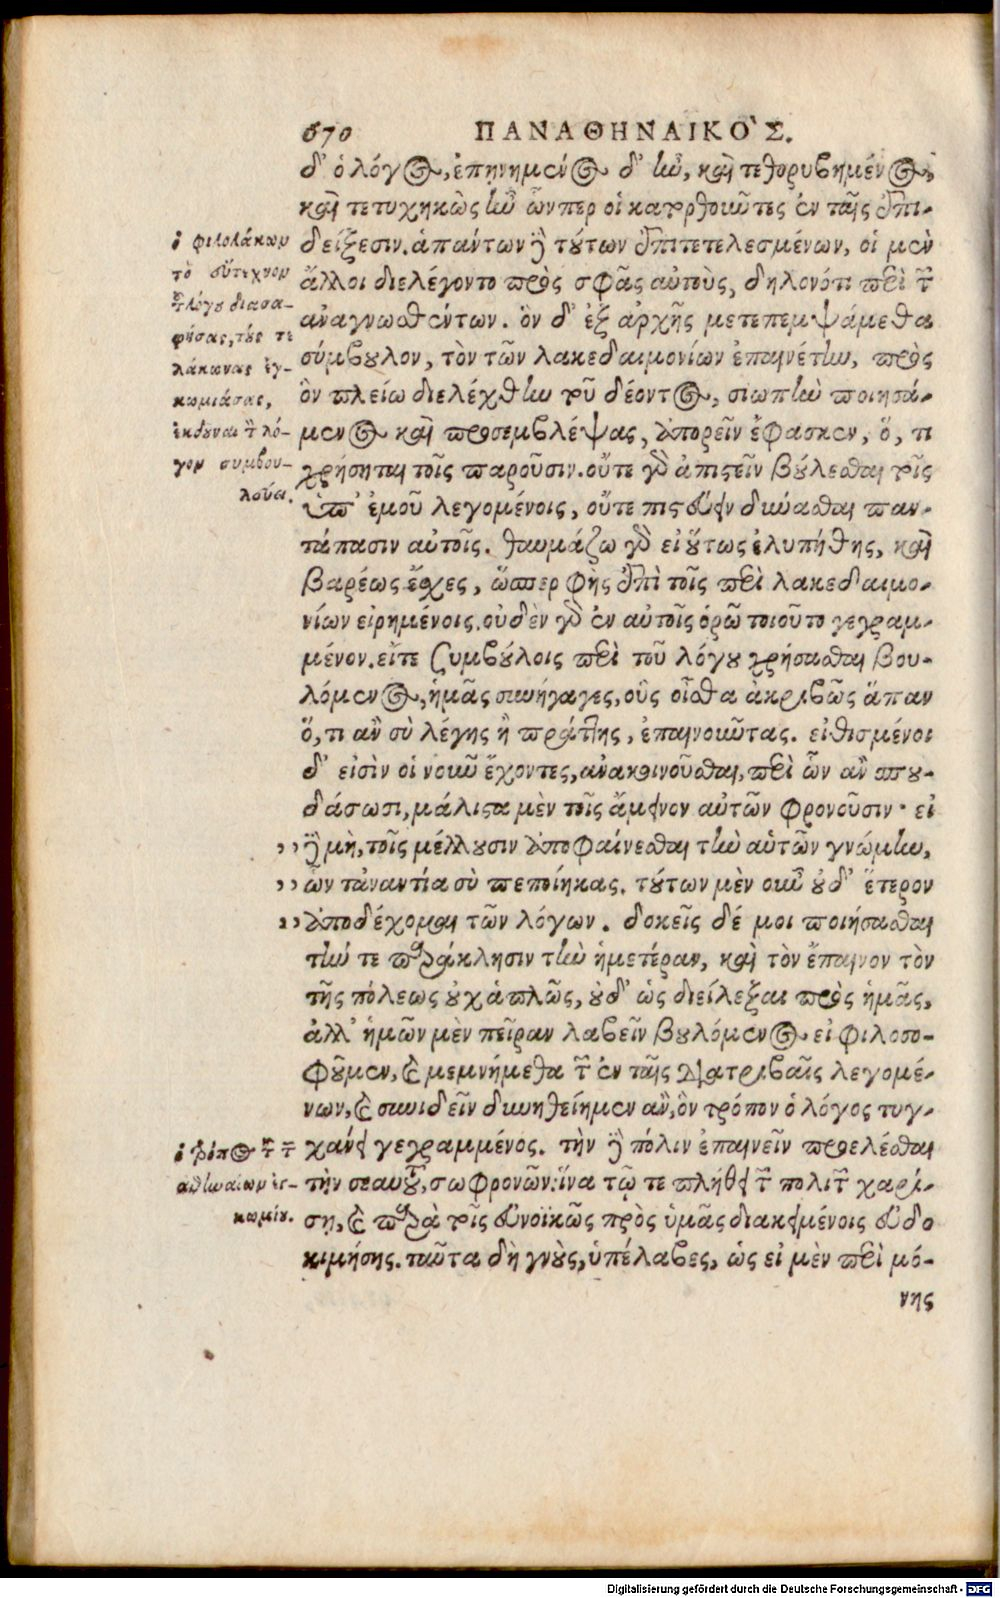 670 ΠΑΝΑΘΗΝΑΙΚΟ'Σ.
δ' ὁ λόγος, ἐπῃνημένος δ' ἦν, καὶ τεθορυβημένος,
καὶ τετυχηκὼς ἦν ὧνπερ οἱ κατορθοῦντες ἐν ταῖς ἐπι-
δείξεσιν. ἁπάντων δὲ τούτων ἐπιτετελεσμένων, οἱ μὲν
ἄλλοι διελέγοντο πρὸς σφᾶς αὐτοὺς, δηλονότι περὶ τῶν
ἀναγνωσθέντων. ὃν δ' ἐξ ἀρχῆς μετεπεμψάμεθα
σύμβουλον, τὸν τῶν λακεδαιμονίων ἐπαινέτην, πρὸς
ὃν πλείω διελέχθην τοῦ δέοντος, σιωπὴν ποιησά-
μενος καὶ προσεμβλέψας, ἀπορεῖν ἔφασκεν, ὅ, τι
χρήσηται τοῖς παροῦσιν. οὔτε γὰρ ἀπιστεῖν βούλεσθαι τοῖς
ὑπ' ἐμοῦ λεγομένοις, οὔτε πιστεύειν δύνασθαι παν-
τάπασιν αὐτοῖς. θαυμάζω γὰρ εἰ οὕτως ἐλυπήθης, καὶ
βαρέως ἔσχες, ὥσπερ φῂς ἐπὶ τοῖς περὶ λακεδαιμο-
νίων εἰρημένοις. οὐδὲν γὰρ ἐν αὐτοῖς ὁρῶ τοιοῦτο γεγραμ-
μένον. εἴτε ζυμβούλοις περὶ τοῦ λόγου χρήσασθαι βου-
λόμενος, ἡμᾶς συνήγαγες, οὓς οἶσθα ἀκριβῶς ἅπαν
ὅ, τι ἂν σὺ λέγῃς ἢ πράττῃς, ἐπαινοῦντας. εἰθισμένοι
δ' εἰσὶν οἱ νοῦν ἔχοντες, ἀνακοινοῦσθαι, περὶ ὧν ἂν σπου-
δάσωσι, μάλιστα μὲν τοῖς ἄμεινον αὐτῶν φρονοῦσιν· εἰ
,, δὲ μὴ, τοῖς μέλλουσιν ἀποφαίνεσθαι τὴν αὑτῶν γνώμην,
,, ὧν τἀναντία σὺ πεποίηκας. τούτων μὲν οὖν οὐδ' ἕτερον
,, ἀποδέχομαι τῶν λόγων. δοκεῖς δέ μοι ποιήσασθαι
τήν τε παράκλησιν τὴν ἡμετέραν, καὶ τὸν ἔπαινον τὸν
τῆς πόλεως οὐχ ἁπλῶς, οὐδ' ὡς διείλεξαι πρὸς ἡμᾶς,
ἀλλ' ἡμῶν μὲν πεῖραν λαβεῖν βουλόμενος εἰ φιλοσο-
φοῦμεν, καὶ μεμνήμεθα τῶν ἐν ταῖς διατριβαῖς λεγομέ-
νων, καὶ συνιδεῖν δυνηθείημεν ἂν, ὃν τρόπον ὁ λόγος τυγ-
χάνει γεγραμμένος. τὴν δὲ πόλιν ἐπαινεῖν προελέσθαι
τὴν σεαυτοῦ, σωφρονῶν: ἵνα τῷ τε πλήθει τῶν πολιτῶν χαρί-
σῃ, καὶ παρὰ τοῖς εὐνοϊκῶς πρὸς ὑμᾶς διακειμένοις εὐδο
κιμήσῃς. ταῦτα δὴ γνοὺς, ὑπέλαβες, ὡς εἰ μὲν περὶ μό-
νης
ὁ φιλολάκων
τὸ εὔτεχνον
τοῦ λόγου διασα-
φήσας, τούς τε
λάκωνας ἐγ-
κωμιάσας,
ἐκδοῦναι τὸν λό-
γον συμβου-
λεύει.
ὁ τρόπος τοῦ τῶν
ἀθηναίων ἐγ-
κωμίου.
Digitalisierung gefördert durch die Deutsche Forschungsgemeinschaft - DFG